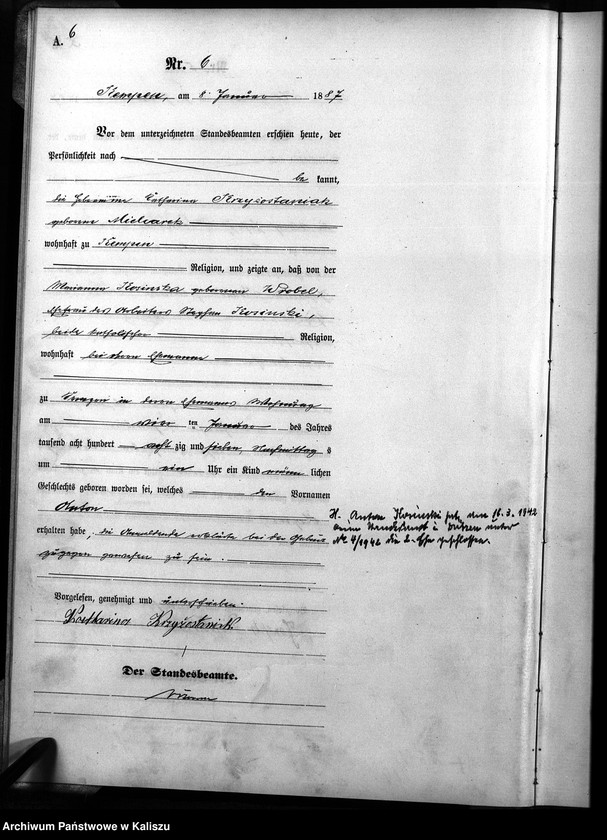 A. 6
Nr. 6
Kempen, am 8. Januar 1887
Vor dem unterzeichneten Standesbeamten erschien heute, der
Persönlichkeit nach
be kannt,
die Hebamme Catharina Krzyżostaniak
geborene Mielcarek
wohnhaft zu Kempen
Religion, und zeigte an, daß von der
Marianna Kosinska geborenen Wrobel,
Ehefrau des Arbeiters Stephan Kosinski,
beide katholischer Religion,
wohnhaft bei ihrem Ehemanne
zu Kempen in deren Ehemannes Wohnung
am ten Januar des Jahres
tausend acht hundert acht zig und sieben, Nachmittag s
um ein Uhr ein Kind männ lichen
Geschlechts geboren worden sei, welches den Vornamen
Anton
erhalten habe, die Anmeldende erklärte bei der Geburt
zugegen gewesen zu sein.
H. Anton Kosinski hat am 16.3.1942
Standesamt unter
Nr. 4/1942 die 2. Ehe geschlossen.
Vorgelesen, genehmigt und unterschrieben.
Katharina Krzyżostaniak
Der Standesbeamte.
Archiwum Państwowe w Kaliszu